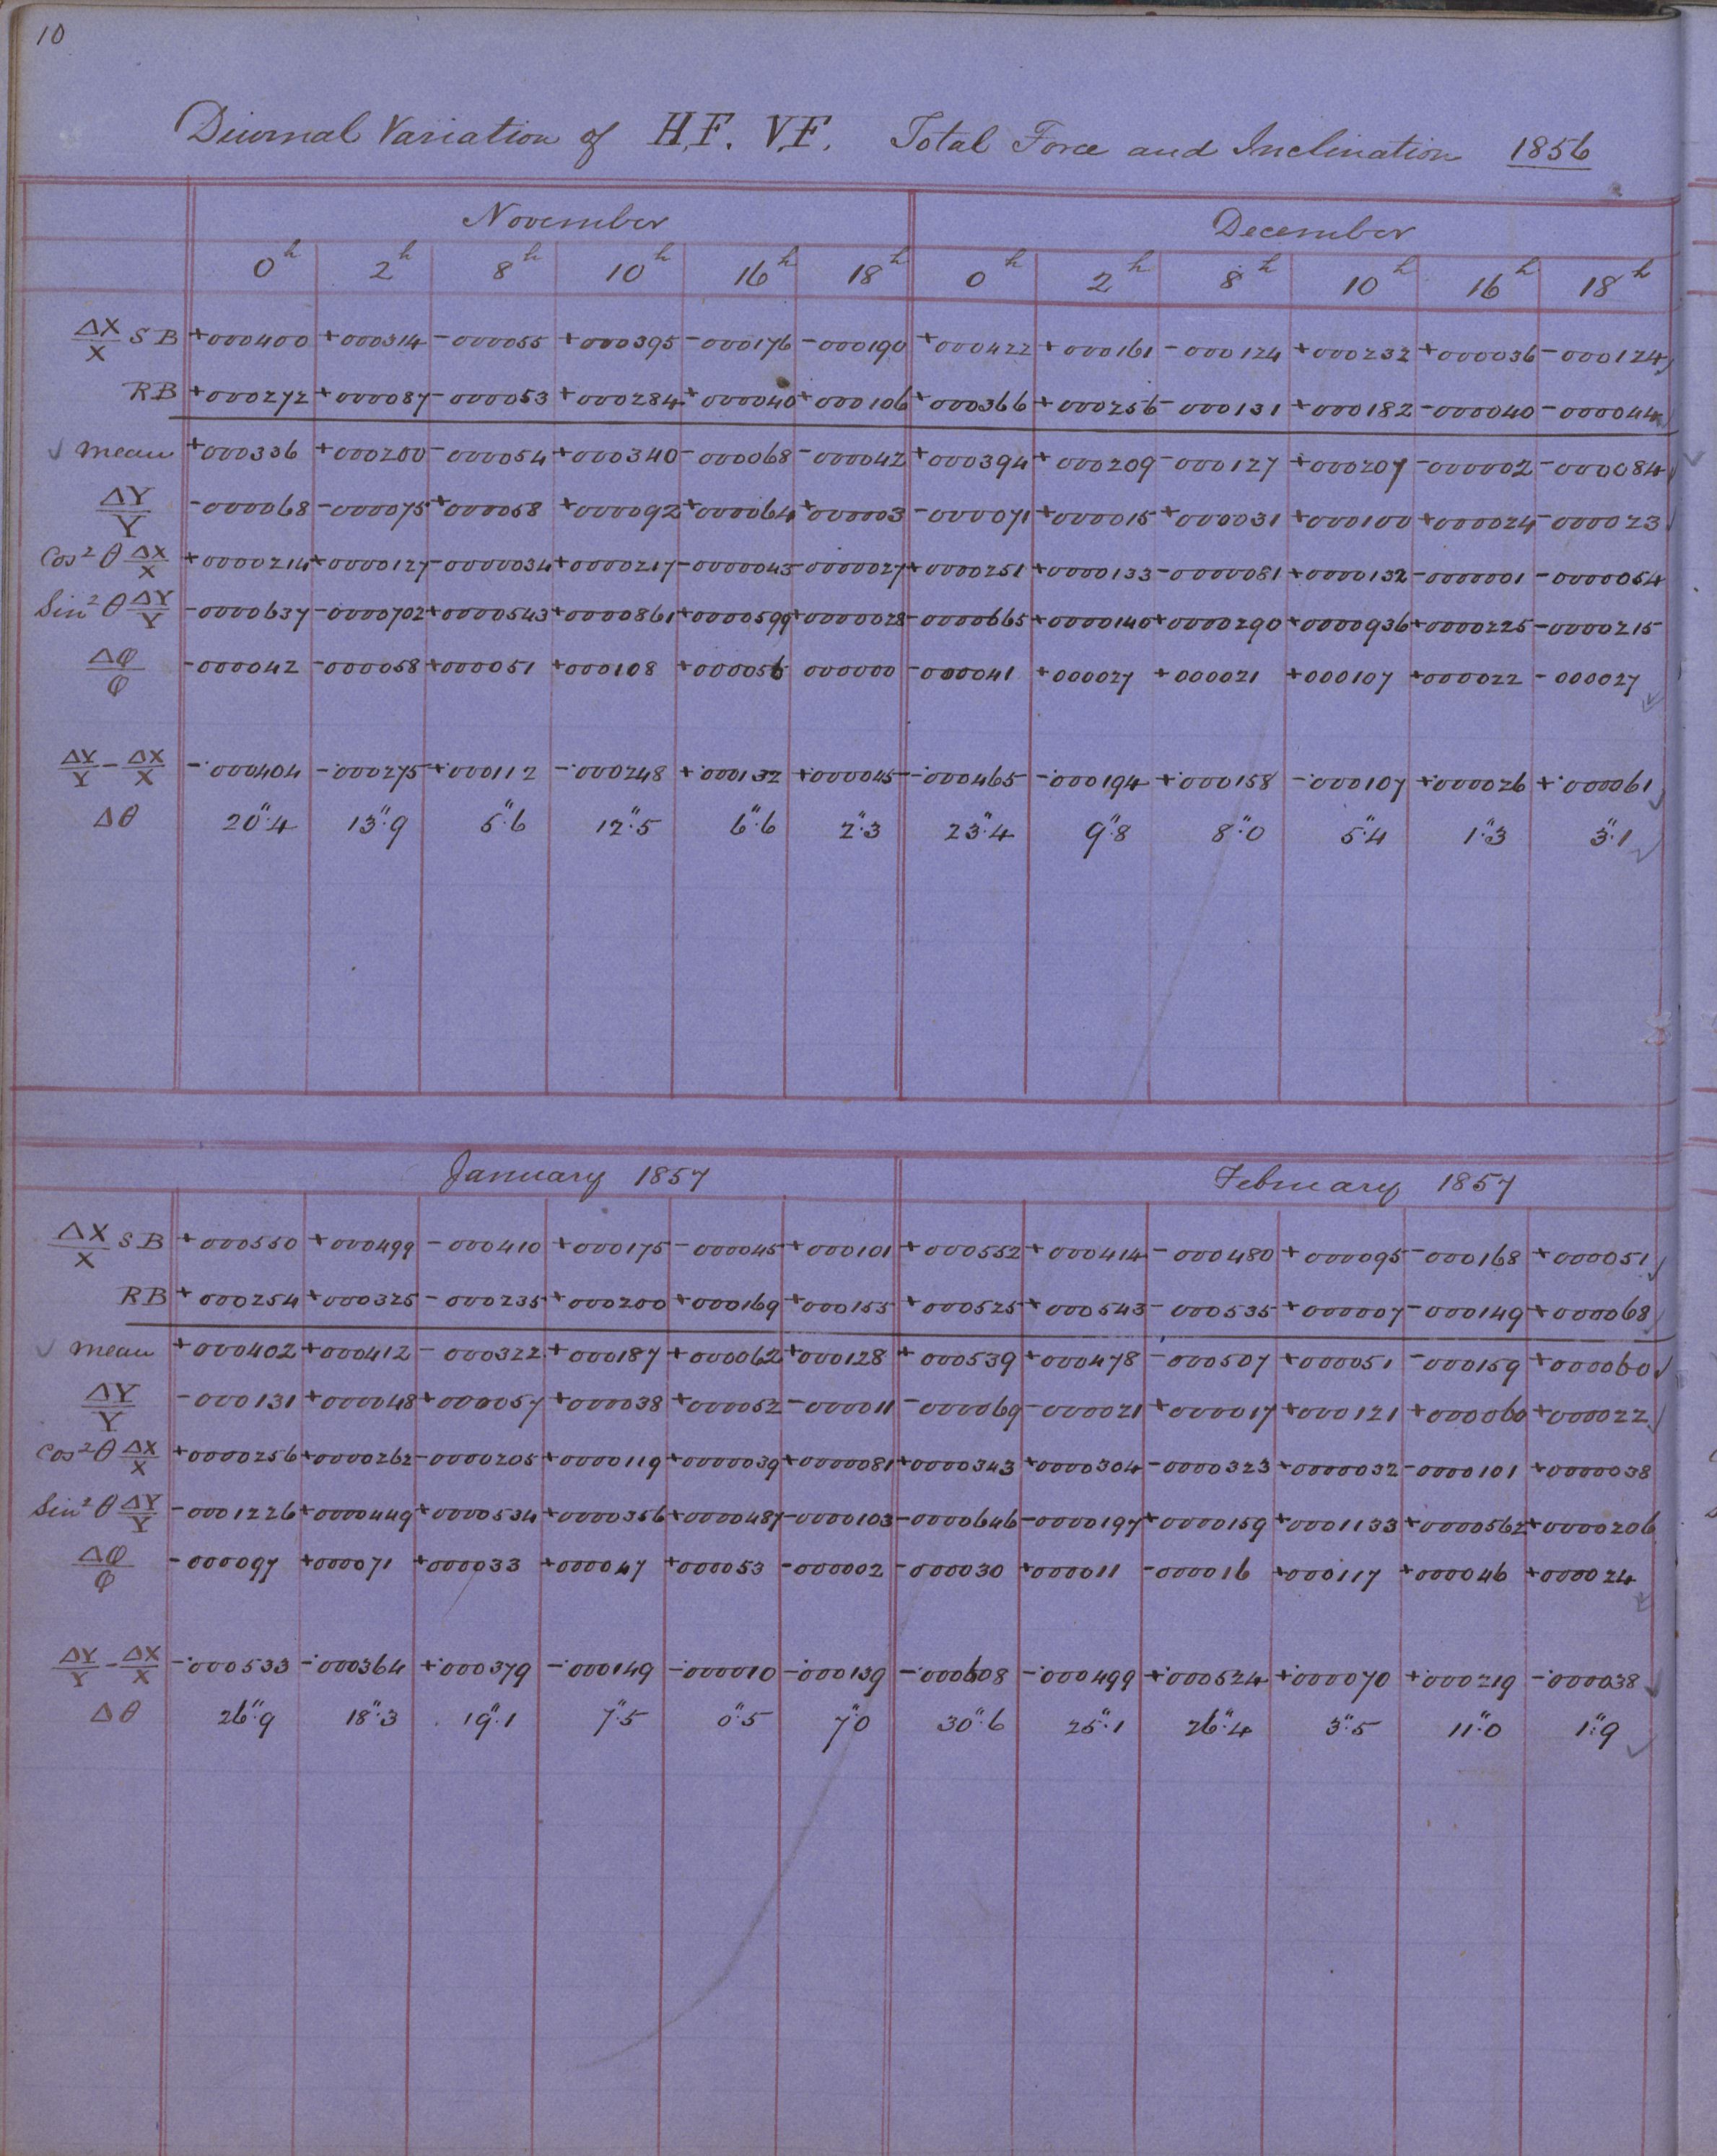 10
Diurnal Variation of H.F. V.F. Total Force and Inclination 1856
November December
0h 2h 8h 10h 16h 18h 0h 2h 8h 10h 16h 18h
ΔX/X SB +000400 +000314 -000055 +000395 -000176 -000190 +000422 +000161 -000124 +000232 +000036 -000124
RB +000272 +000087 -000053 +000284 +000040 +000106 +000366 +000256 -000131 +000182 -000040 -000044
mean +000336 +000200 -000054 +000340 -000068 -000042 +000394 +000209 -000127 +000207 -000002 -000084
ΔY/Y -000068 -000075 +000058 +000092 +000064 +000003 -000071 +000015 +000031 +000100 +000024 -000023
Cos²θ ΔX/X +0000214 +0000127 -0000034 +0000217 -0000043 -0000027 +0000251 +0000133 -0000081 +0000132 -0000001 -0000054
Sin²θ ΔY/Y -0000637 -0000702 +0000543 +0000861 +0000599 +0000028 -0000665 +0000140 +0000290 +0000936 +0000225 -0000215
Δφ/φ -000042 -000058 +000051 +000108 +000056 000000 -000041 +000027 +000021 +000107 +000022 -000027
ΔY/Y - ΔX/X -·000404 -·000275 +·000112 -·000248 +·000132 +·000045 -·000465 -·000194 +·000158 -·000107 +·000026 +·000061
Δθ 20″.4 13″.9 5″.6 12″.5 6″.6 2″.3 23″.4 9″.8 8″.0 5″.4 1″.3 3″.1
January 1857 February 1857
ΔX/X SB +000550 +000499 -000410 +000175 -000045 +000101 +000552 +000414 -000480 +000095 -000168 +000051
RB +000254 +000325 -000235 +000200 +000169 +000155 +000525 +000543 -000535 +000007 -000149 +000068
mean +000402 +000412 -000322 +000187 +000062 +000128 +000539 +000478 -000507 +000051 -000159 +000060
ΔY/Y -000131 +000048 +000057 +000038 +000052 -000011 -000069 -000021 +000017 +000121 +000060 +000022
Cos²θ ΔX/X +0000256 +0000262 -0000205 +0000119 +0000039 +0000081 +0000343 +0000304 -0000323 +0000032 -0000101 +0000038
Sin²θ ΔY/Y -0001226 +0000449 +0000534 +0000356 +0000487 -0000103 -0000646 -0000197 +0000159 +0001133 +0000562 +0000206
Δφ/φ -000097 +000071 +000033 +000047 +000053 -000002 -000030 +000011 -000016 +000117 +000046 +000024
ΔY/Y - ΔX/X -·000533 -·000364 +·000379 -·000149 -·000010 -·000139 -·000608 -·000499 +·000524 +·000070 +·000219 -·000038
Δθ 26″.9 18″.3 19″.1 7″.5 0″.5 7″.0 30″.6 25″.1 26″.4 3″.5 11″.0 1″.9